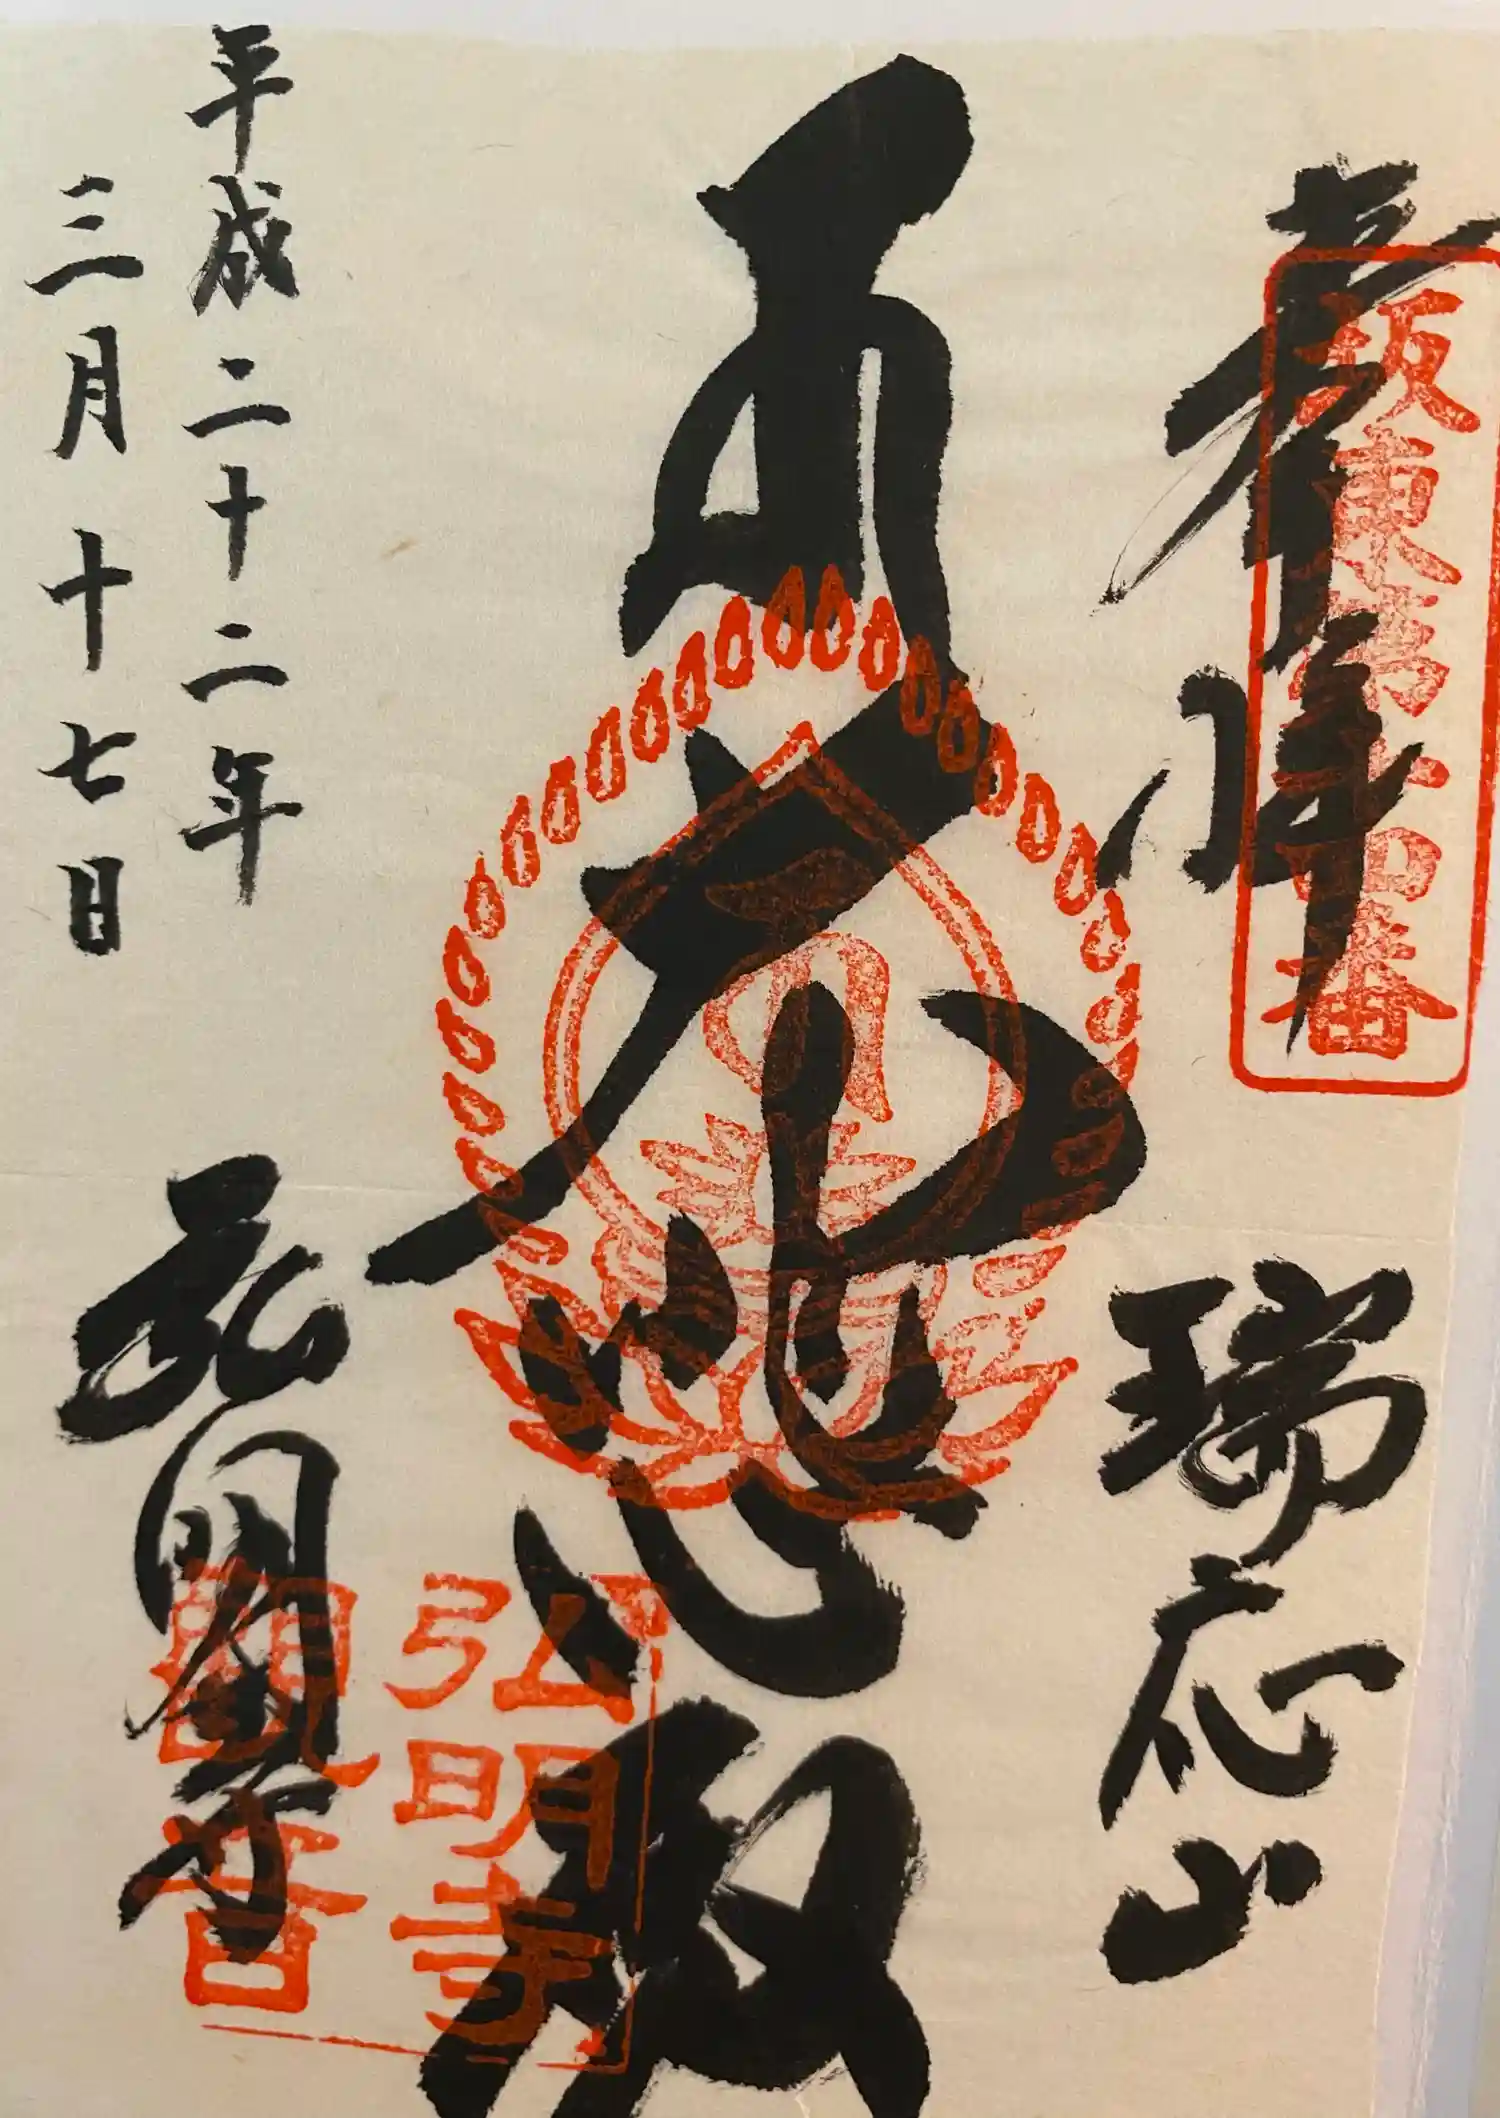 奉拝
坂東第十四番
瑞応山
大悲殿
平成二十二年
三月十七日
弘明寺
弘明寺
觀音